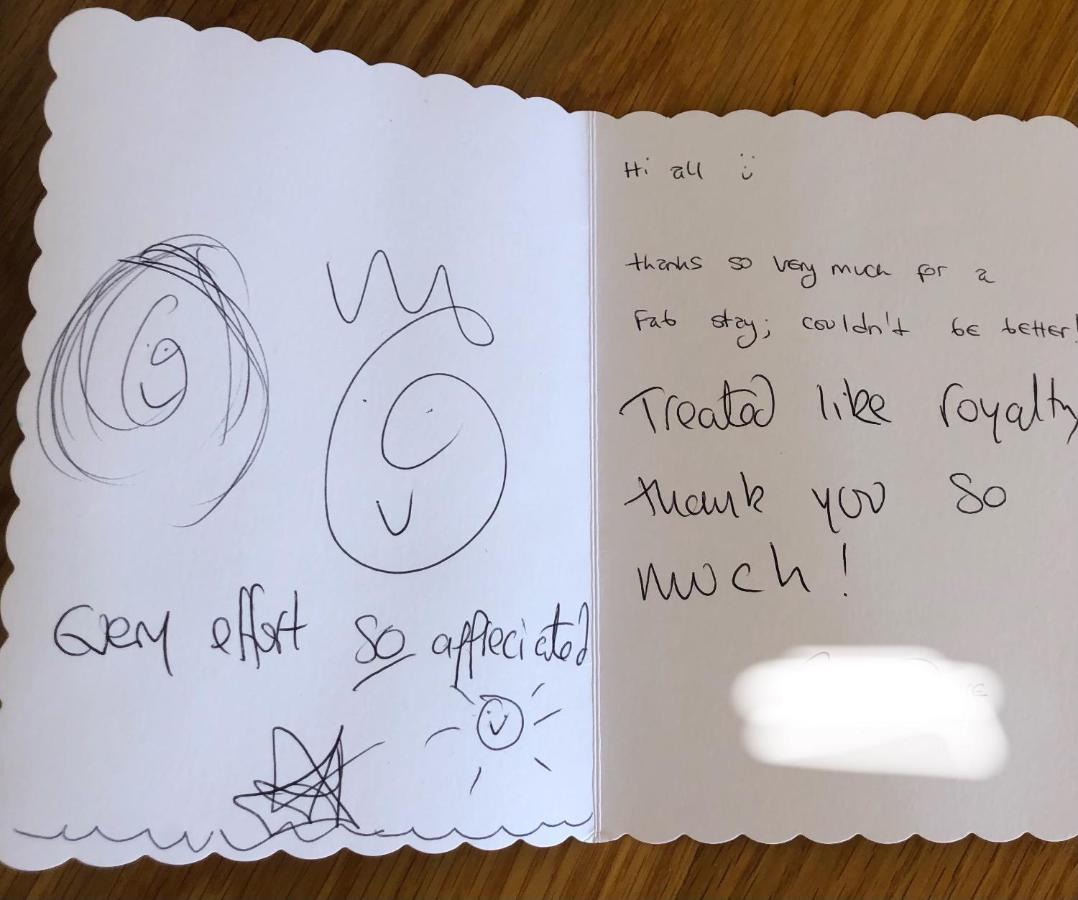 Every effort so appreciated
Hi all :)
thanks so very much for a
Fab stay; couldn't be better!
Treated like royalty
thank you so
much!